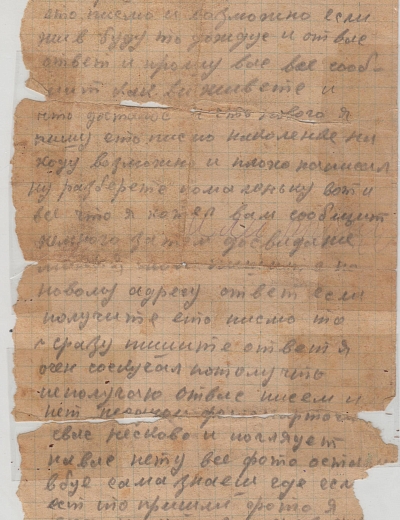 это писмо и возможно если
жив буду то дождус и отвас
ответ и прошу вас все сооб-
шит как ви живете и
что
пишу ето писмо наколенке на
ходу возможно и плохо написал
ну разберете помаленьку вот и
все что я хотел вам сообщит
затем досвидание
новому адресу ответ если
получите ето писмо то
сразу пишите ответ я
очен соскучал потомучто
неполучаю отвас писем и
нет
свас несково и погляует
навас нету все фото оста
вбуе сама знаеш где есл
ест то пришли фото я